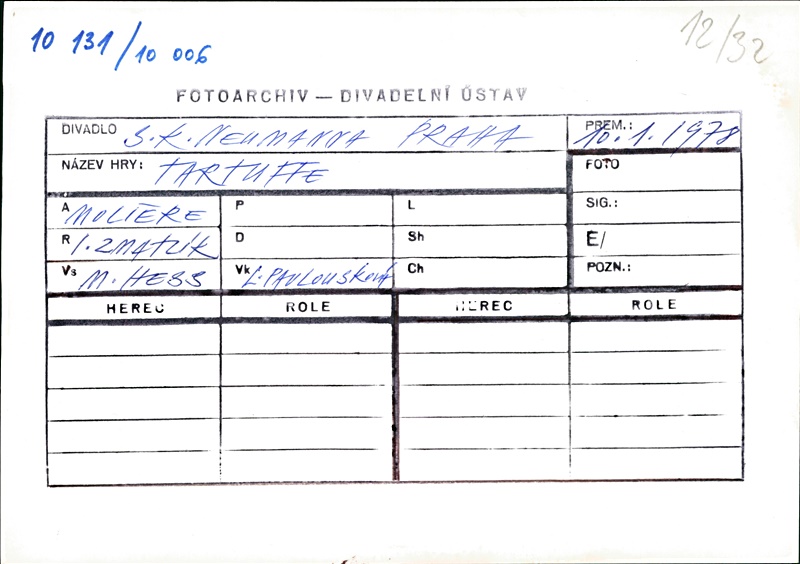 10 131/10 006
12/32
FOTOARCHIV — DIVADELNÍ ÚSTAV
DIVADLO S.K. NEUMANNA PRAHA
PREM.: 10.1.1978
NÁZEV HRY: TARTUFFE
FOTO
A MOLIÈRE P L SIG.:
R I. ZMATLÍK D Sh E/
Vs M. HESS Vk L. PAVLOUSKOVÁ Ch POZN.:
HEREC ROLE HEREC ROLE